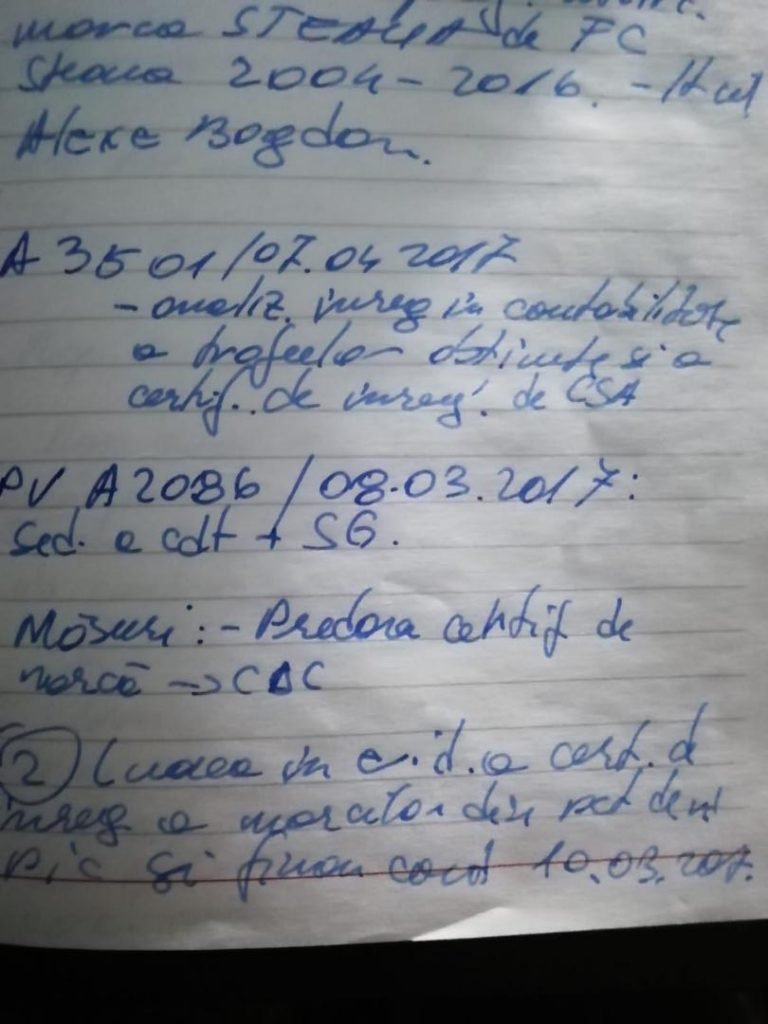 marca STEAUA de FC
Steaua 2004-2016. - Hot
Alexe Bogdan.
A 3501/07.04 2017
- analiz. inreg in contabilitate
a trofeelor obtinute si a
certif. de inreg. de CSA
PV A2086/08.03.2017:
Sed. a cdt + SG.
Măsuri: - Predarea certif de
marcă -> CAC
2 Luarea in evid. a cert. d
inreg a marcilor din pct de
si finan cont 10.03.2017.